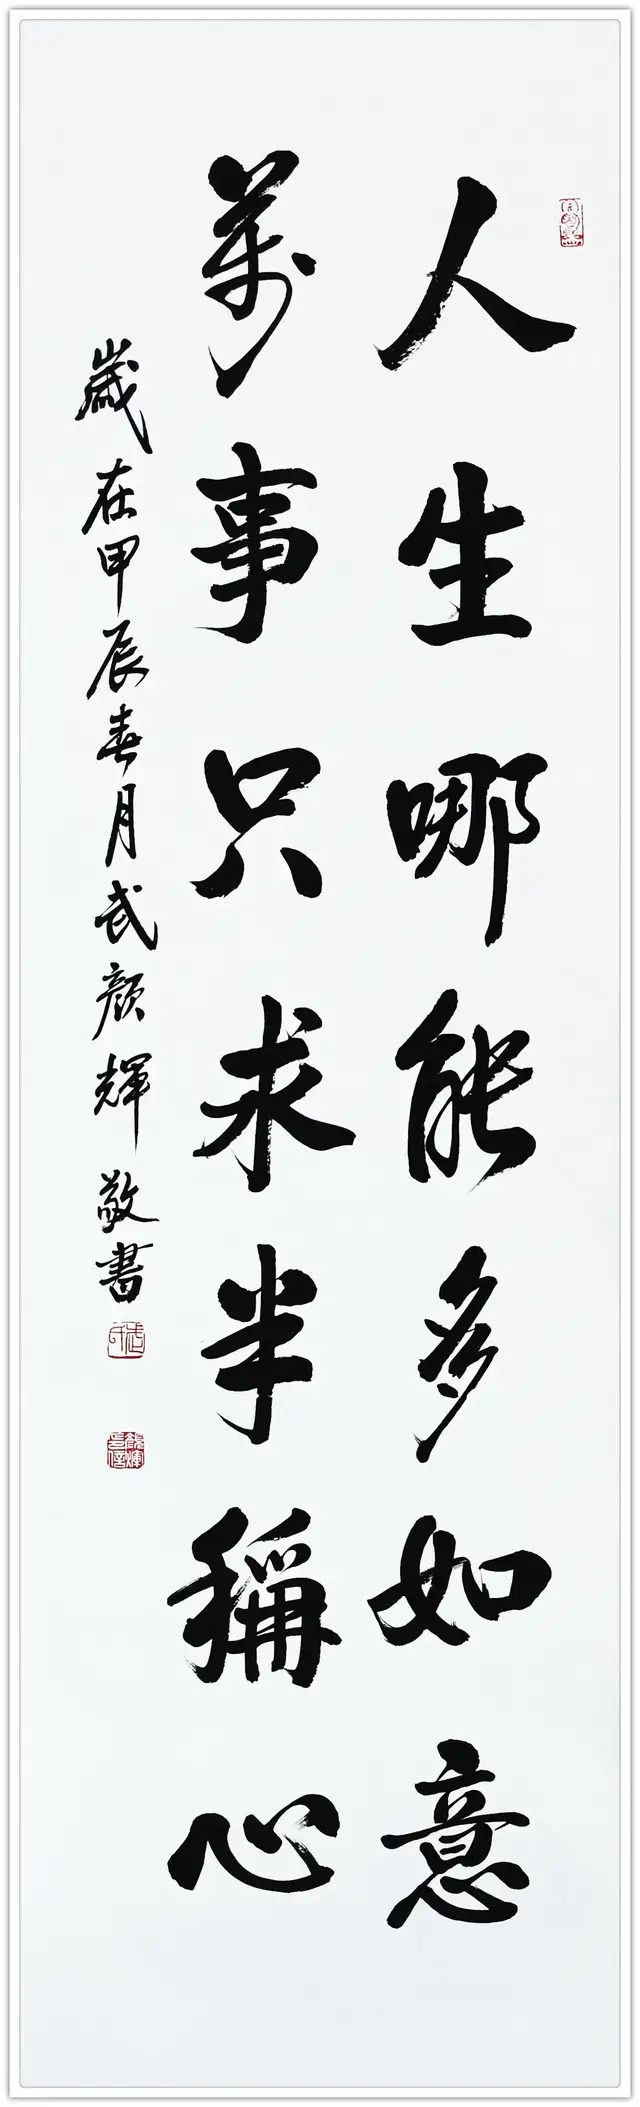 人生哪能多如意
萬事只求半稱心
歲在甲辰春月武顏輝敬書